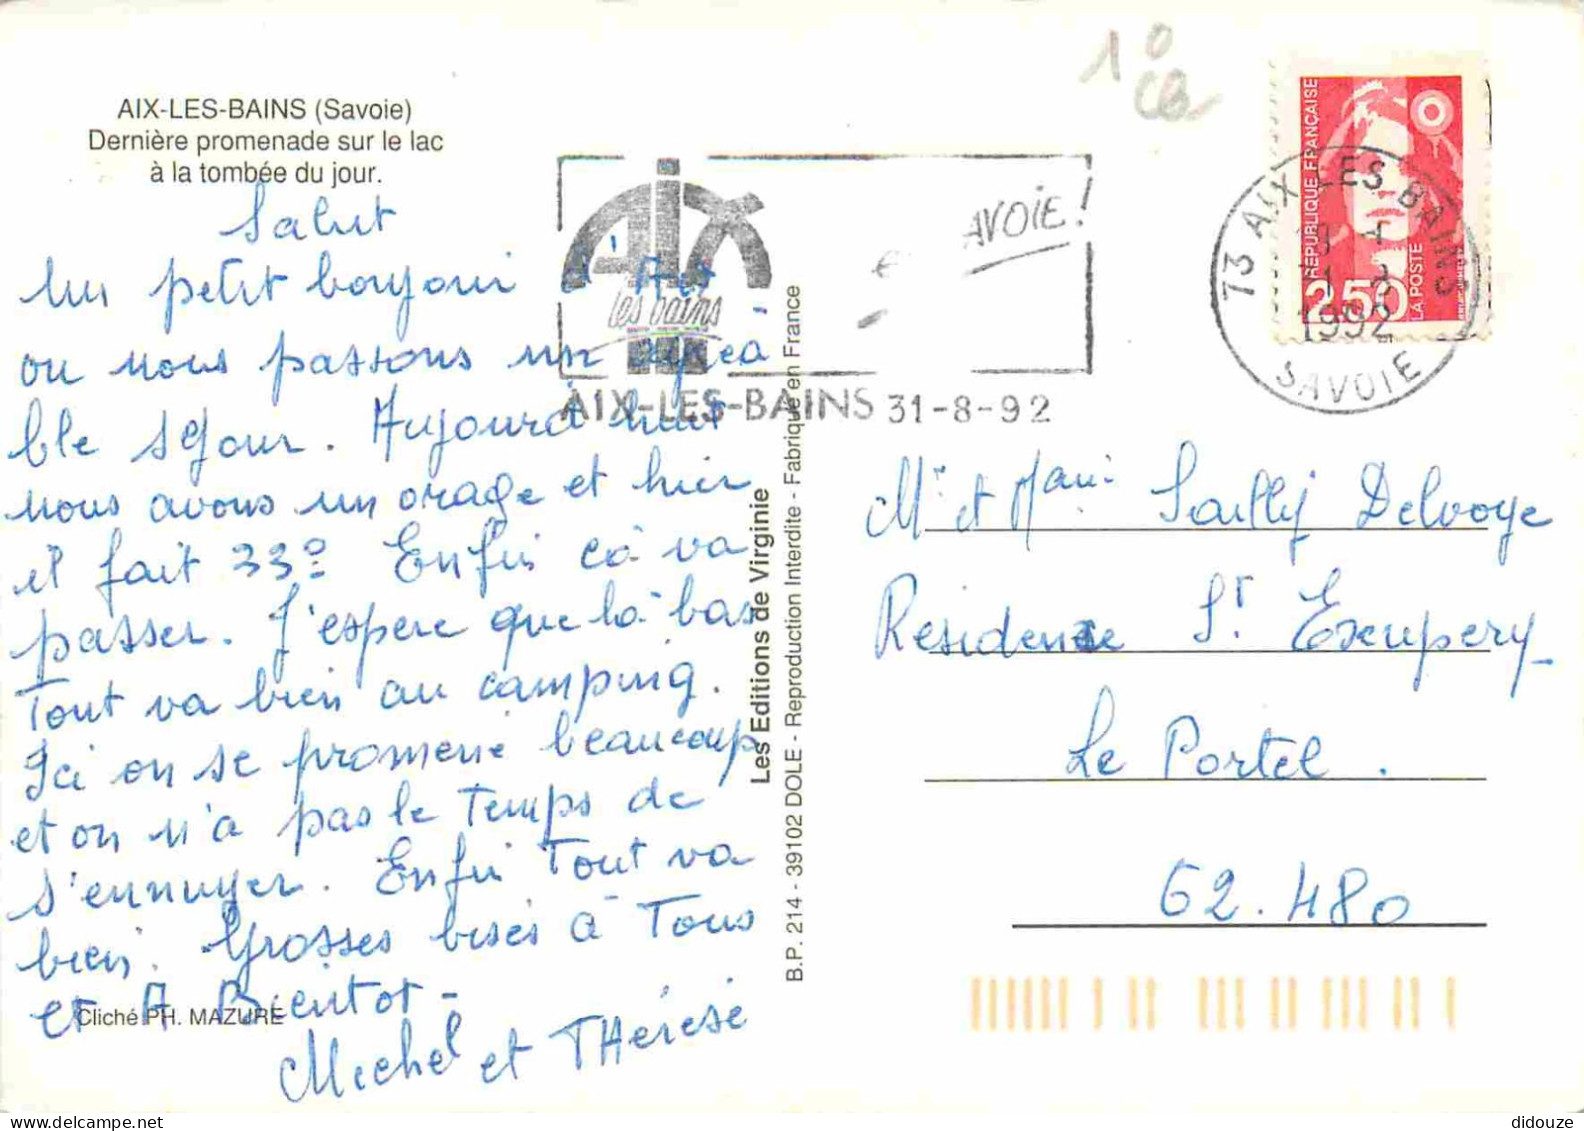 AIX-LES-BAINS (Savoie)
Dernière promenade sur le lac
à la tombée du jour.
Salut
Un petit bonjour d'Aix
ou nous passons un agréa
ble séjour. Aujourd'hui
nous avons un orage et hier
il fait 33º Enfin cà va
passer. J'espere que là-bas
Tout va bien au camping.
Ici on se promene beaucoup
et on n'a pas le Temps de
s'ennuyer. Enfin Tout va
bien. Grosses bises à Tous
et A Bientot -
Michel et THérèse
Cliché PH. MAZURE
Les Editions de Virginie
B.P. 214 - 39102 DOLE - Reproduction Interdite - Fabriqué en France
1º
CB
AiX
les bains
AVOiE!
AIX-LES-BAINS 31-8-92
RÉPUBLIQUE FRANÇAISE
2,50
LA POSTE
73 AIX LES BAINS
1992
SAVOIE
Mr et Mme Sailly Delvoye
Residence St Exupery
Le Portel.
62.480
didouze